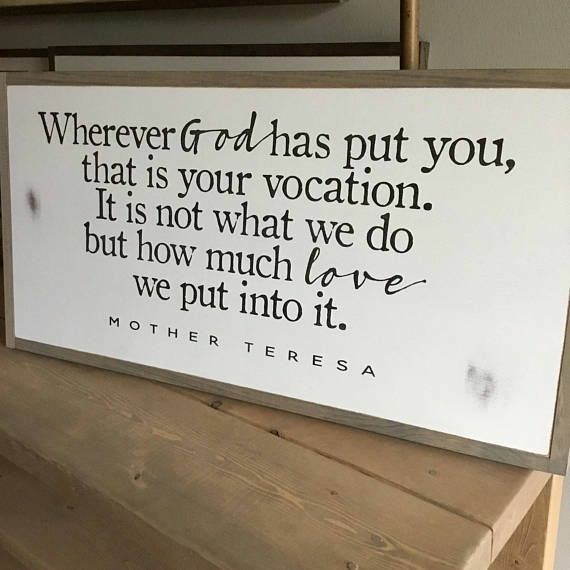 Wherever God has put you,
that is your vocation.
It is not what we do
but how much love
we put into it.
MOTHER TERESA